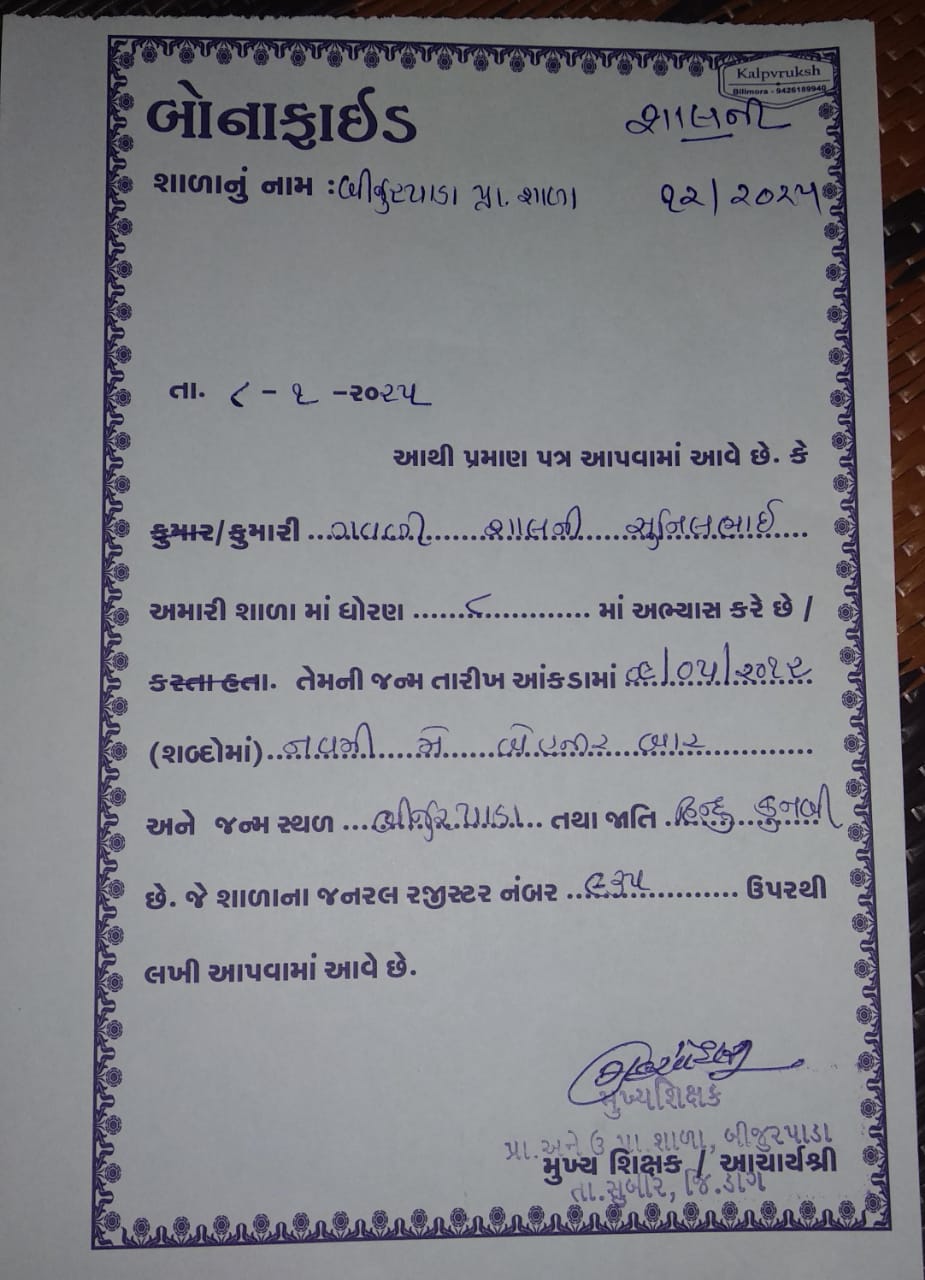 Kalpvruksh
Bilimora - 9426189940
બોનાફાઈડ શાલની
શાળાનું નામ : બીજુરપાડા પ્રા. શાળા ૧૨/૨૦૨૫
તા. ૮ - ૧ -૨૦૨૫
આથી પ્રમાણ પત્ર આપવામાં આવે છે. કે
કુમાર/કુમારી ...ગવળી......શાલની....સુનિલભાઈ....
અમારી શાળા માં ધોરણ ......૮............ માં અભ્યાસ કરે છે /
કરતા હતા. તેમની જન્મ તારીખ આંકડામાં ૦૯/૦૫/૨૦૧૨
(શબ્દોમાં)..નવમી....મે.....બેહજાર...બાર.............
અને જન્મ સ્થળ ...બીજુરપાડા... તથા જાતિ .હિન્દુ કુનબી
છે. જે શાળાના જનરલ રજીસ્ટર નંબર ............... ઉપરથી
લખી આપવામાં આવે છે.
મુખ્યશિક્ષક
પ્રા.અને ઉ.પ્રા.શાળા, બીજુરપાડા
મુખ્ય શિક્ષક / આચાર્યશ્રી
તા.સુબીર, જિ.ડાંગ